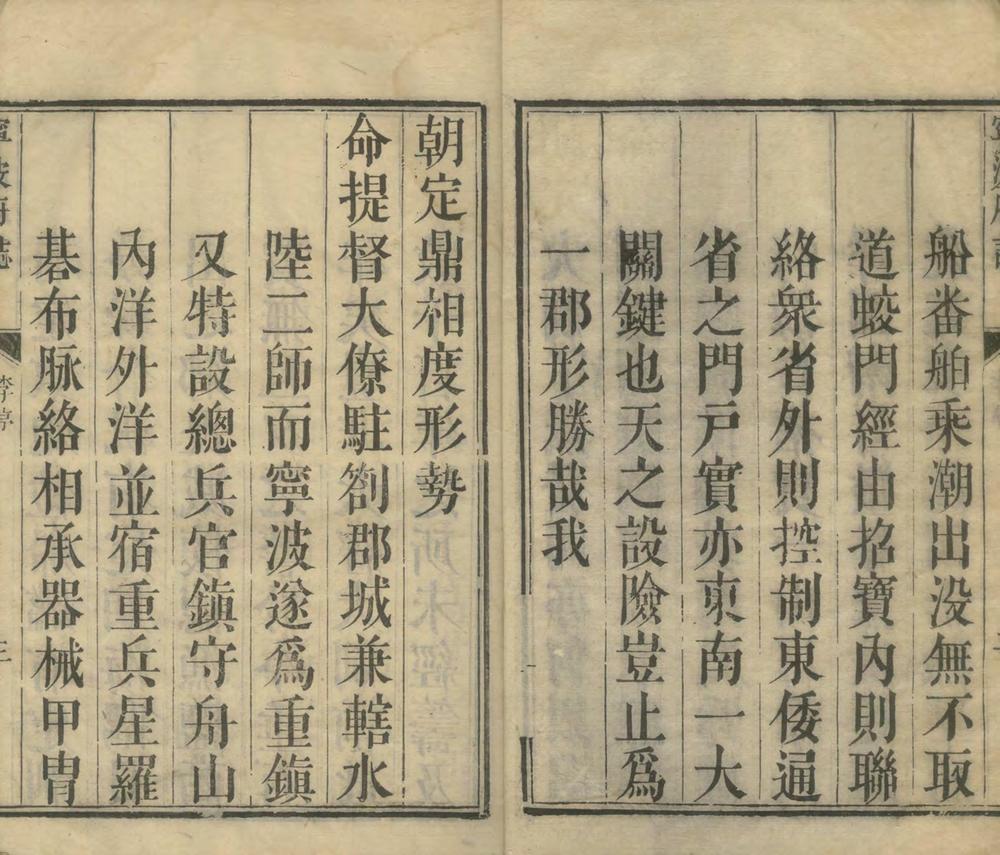 船番舶乘潮出没無不取
道蛟門經由招寶內則聯
絡衆省外則控制東倭通
省之門戸實亦東南一大
關鍵也天之設險豈止爲
一郡形勝哉我
朝定鼎相度形勢
命提督大僚駐劄郡城兼轄水
陸二師而寧波遂爲重鎮
又特設總兵官鎮守舟山
內洋外洋並宿重兵星羅
碁布脉絡相承器械甲冑
寧波府誌
李序
三